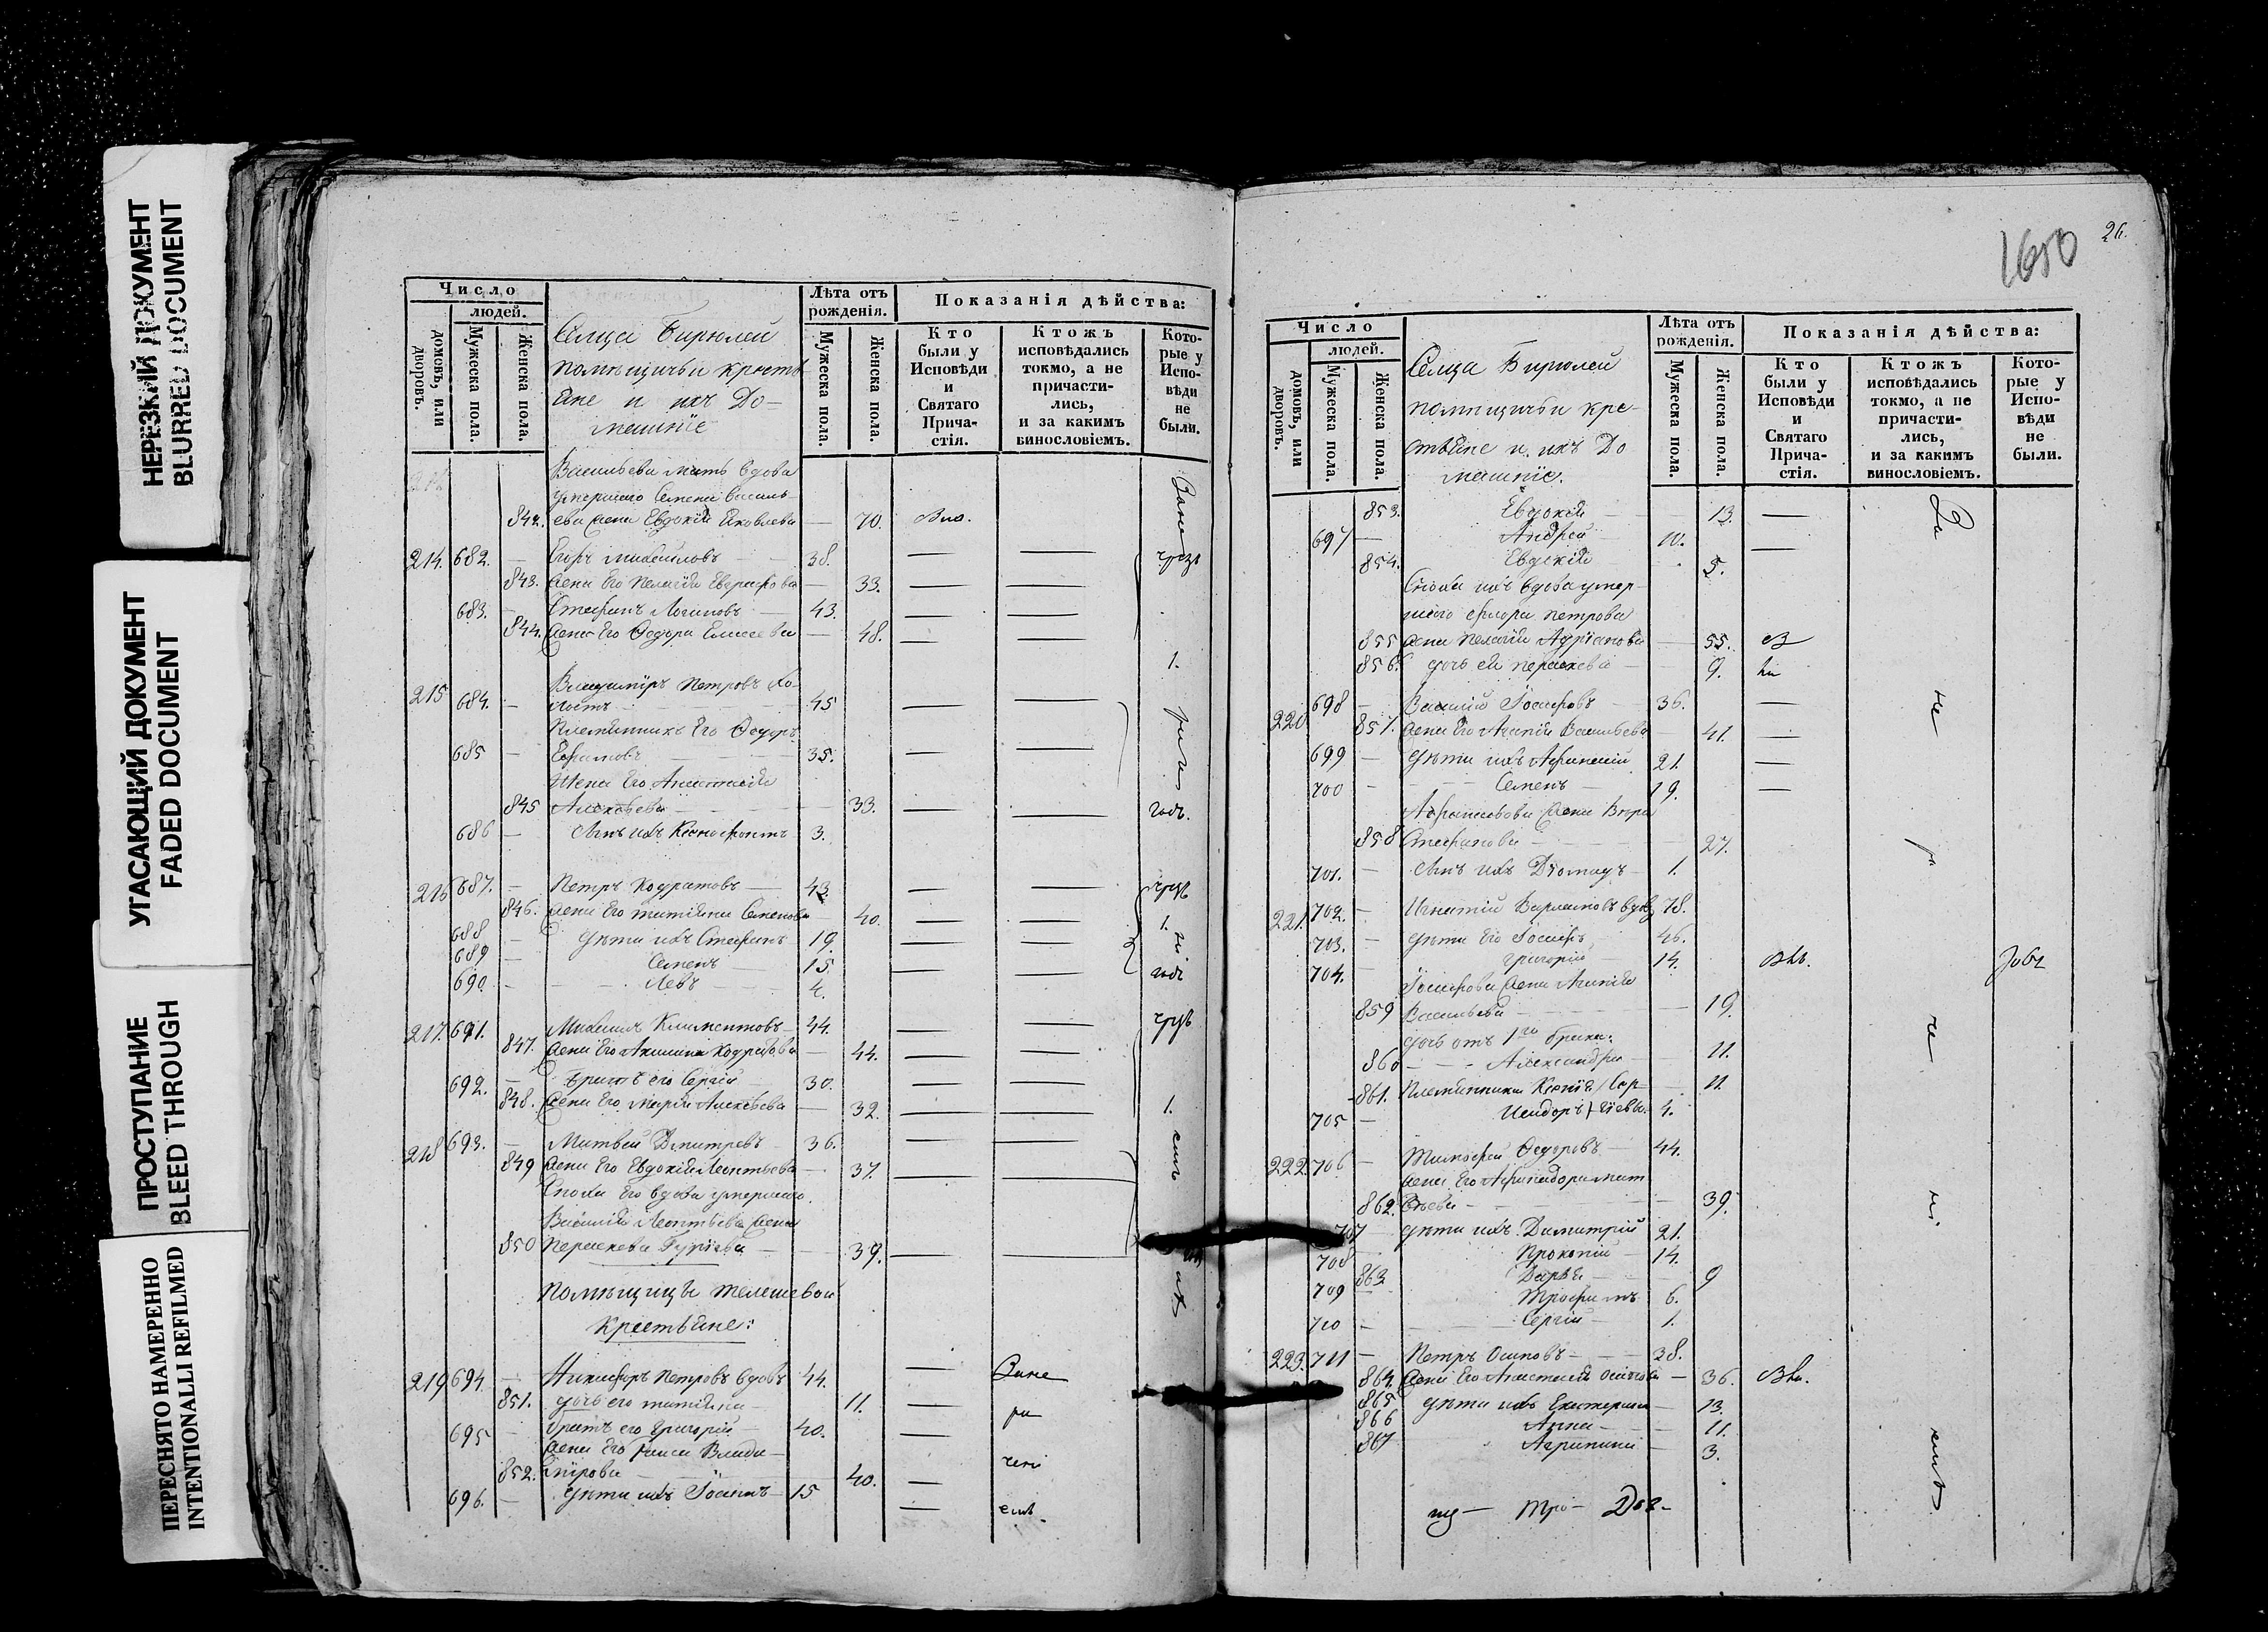 НЕРЕЗКИЙ ДОКУМЕНТ
BLURRED DOCUMENT
УГАСАЮЩИЙ ДОКУМЕНТ
FADED DOCUMENT
ПРОСТУПАНИЕ
BLEED THROUGH
ПЕРЕСНЯТО НАМЕРЕННО
INTENTIONALLI REFILMED
Число
людей.
домовъ, или дворовъ.
Мужеска пола.
Женска пола.
Селца Бирюлей
помѣщичьи крестья
не и ихъ До-
машніе
Лѣта отъ рожденія.
Мужеска пола.
Женска пола.
Показанія дѣйства:
Кто были у Исповѣди и Святаго Прича-стія.
Ктожъ исповѣдались токмо, а не причасти-лись, и за какимъ винословіемъ.
Кото-рые у Испо-вѣди не были.
Васильева мать вдова
умершаго Семена Василь-
842. ева жена Евдокія Яковлева — 70.
214. 682. — Егоръ Михайловъ 38.
843. жена Его Пелагія Евграфова — 33.
683. — Стефанъ Логиновъ 43.
844. жена Его Ѳедора Елисеева — 48.
1.
215 684. — Владиміръ Петровъ хо-
лостъ 45
Племянникъ Его Ѳедоръ
685 — 35.
Жена Его Анастасія
845 Алексѣева 33.
годъ.
686 — сынъ ихъ Ксенофонтъ 3.
216 687. — Петръ Кодратовъ 43
846. жена Его Татіяна Семенова 40.
688 — дѣти ихъ Стефанъ 19.
689 — Семенъ 15.
690. — Левъ 4.
217. 691. Михаилъ Климентовъ 44.
847. жена Его Акилина Кодратова — 44.
692. — братъ его Сергій 30.
848. жена Его Марія Алексѣева — 32.
1.
218 693. — Матвей Дмитревъ 36.
849 жена Его Евдокія Леонтьева — 37.
Сноха Его вдова умершаго
Василія Леонтьева жена
850 Параскева Гуріева — 39.
Помѣщицы Телешевой
Крестьяне:
219 694. — Никифоръ Петровъ вдовъ 44.
851. дочь его Татіяна — 11.
695 — братъ его Григорій 40.
жена Его Раиса Влади-
852. мірова 40.
696. — дѣти ихъ 15
26.
1650
Число
людей.
домовъ, или дворовъ.
Мужеска пола.
Женска пола.
Селца Бирюлей
помѣщичьи кре-
стьяне и ихъ До
машніе.
Лѣта отъ рожденія.
Мужеска пола.
Женска пола.
Показанія дѣйства:
Кто были у Исповѣди и Святаго Прича-стія.
Ктожъ исповѣдались токмо, а не причасти-лись, и за какимъ винословіемъ.
Кото-рые у Испо-вѣди не были.
853. Евдокія 13.
697 — Андрей 10.
854. Евдокія 5.
Сноха ихъ вдова умер-
шаго Флора Петрова
855 жена Пелагія Адріанова 55.
856. дочь ея Параскева 9.
220 698 — Василій Іосифовъ 36.
857. жена Его Агапія Васильева 41.
699 — дѣти ихъ Афанасій 21.
700 — Семенъ 19.
Афанасьева жена
858 Стефанова 27.
701. — сынъ ихъ Діомидъ 1.
221. 702. — Игнатій Варламовъ вдов. 78.
703. — дѣти Его Іосифъ 46.
704. Григорій 14.
Іосифова жена Агапія
859 Васильева — 19.
дочь отъ 1го брака:
860 Александра 11.
861. Племянники Ксенія 11.
705 — Исидоръ 4.
222. 706 — Тимофей Ѳедоровъ 44.
жена Его
862. 39.
707 дѣти ихъ Димитрій 21.
708 Прокопій 14.
863 Дарья 9
709 Трофимъ 6.
710 — Сергій 1.
223. 711 — Петръ Осиповъ 38.
864. жена Его Анастасія Осипова — 36.
865 дѣти ихъ Екатерина 13.
866 Анна 11.
867 Агрипина 3.